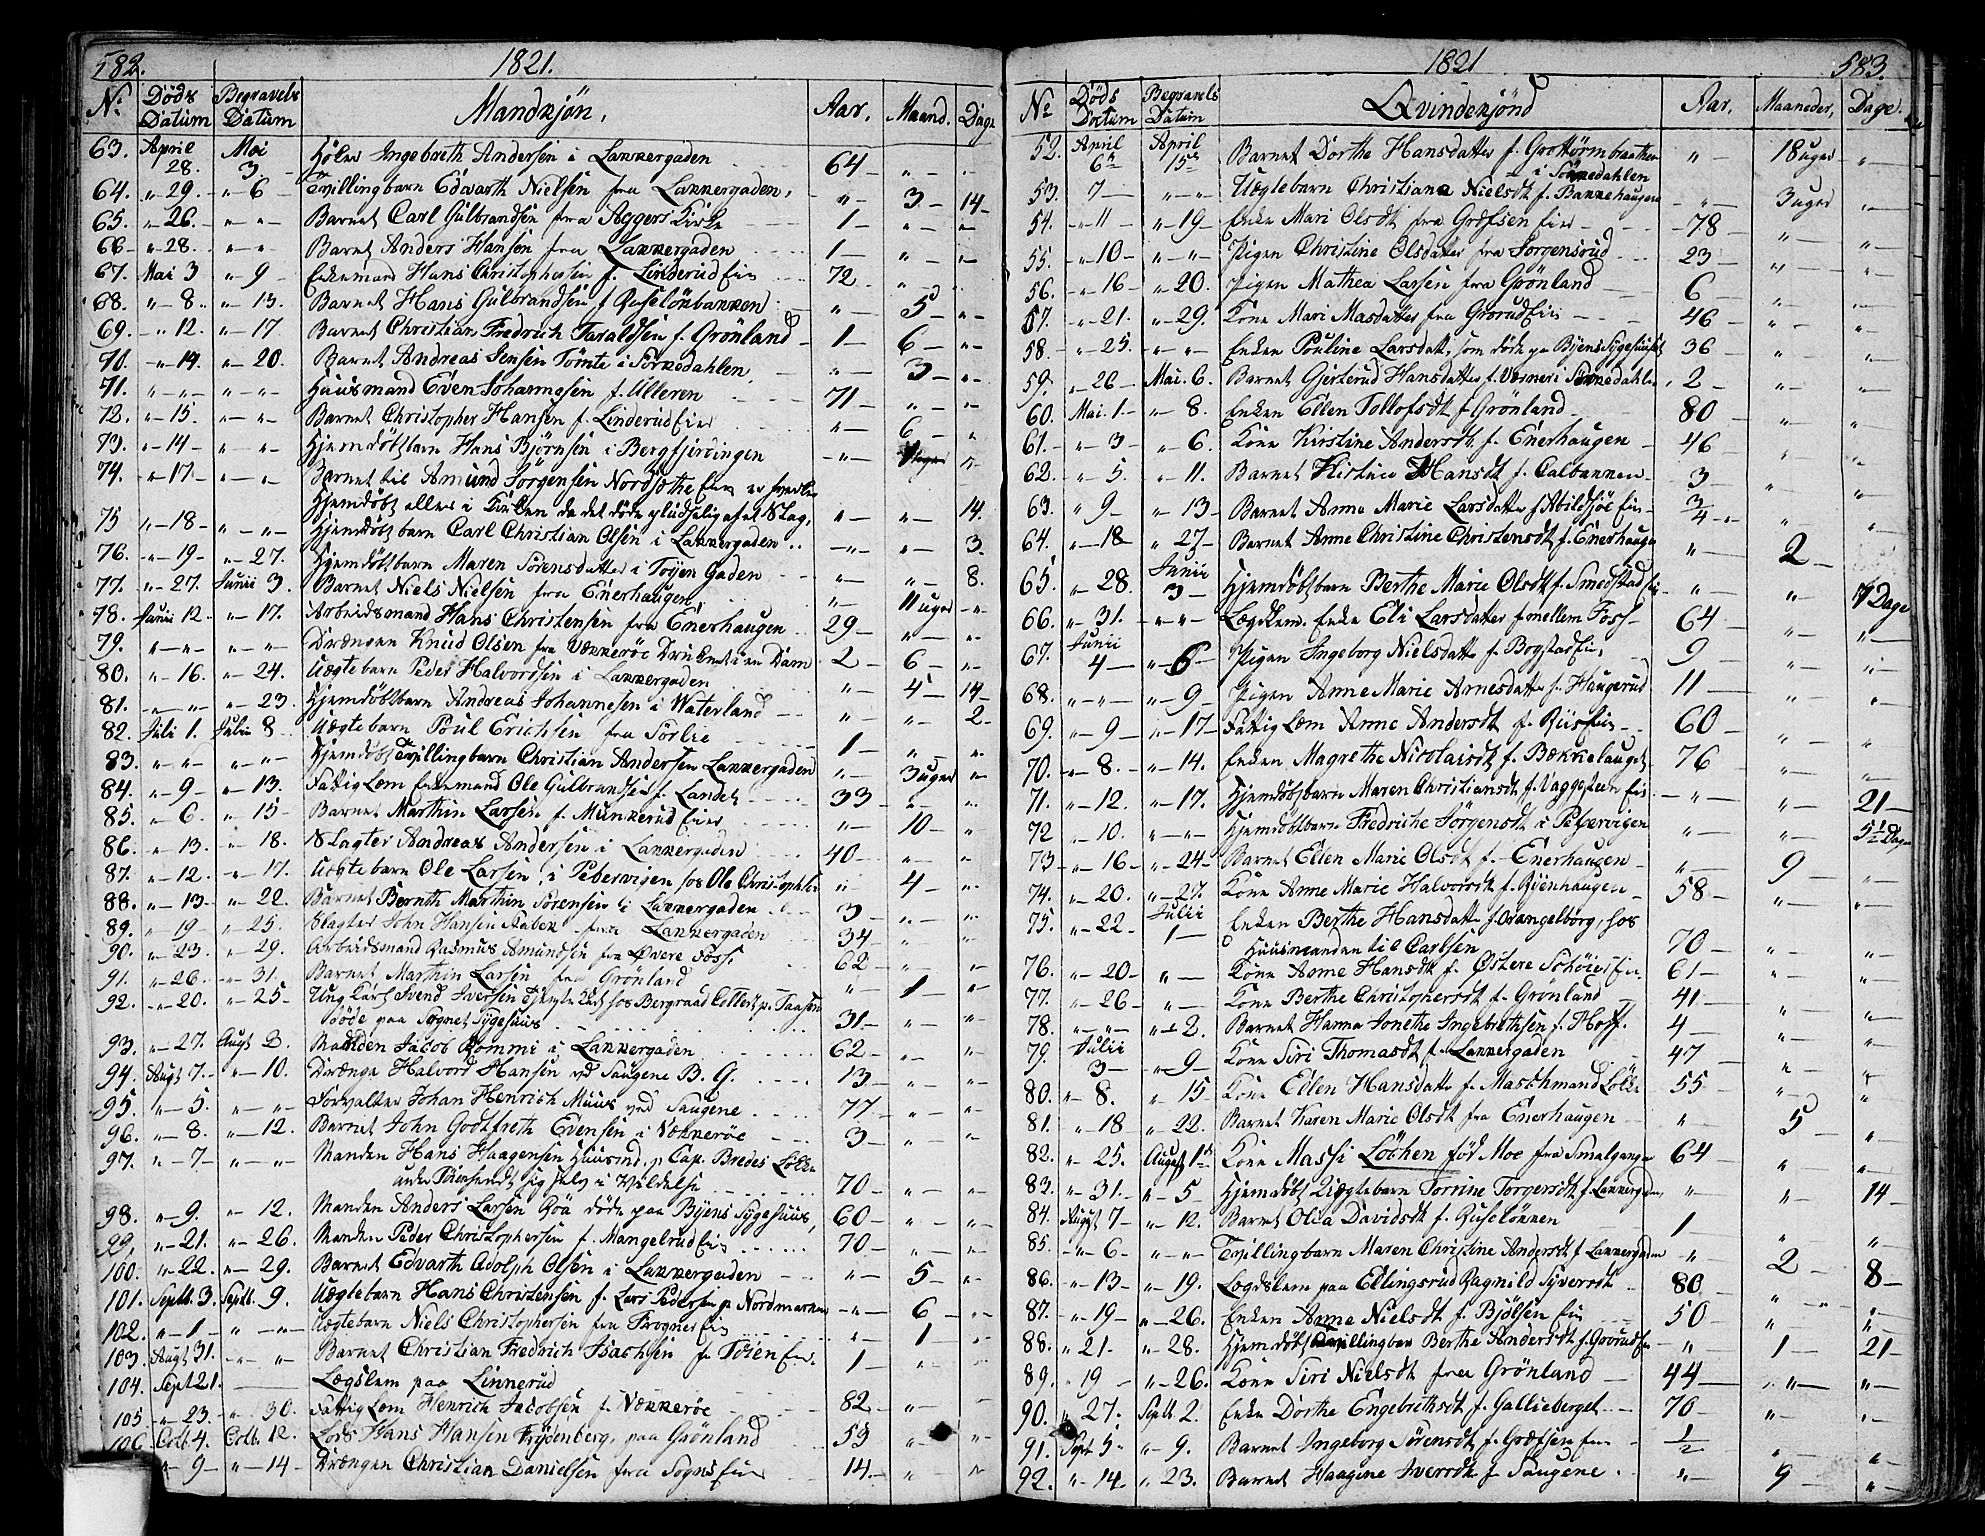 582.
1821.
No Döds Datum Begravels Datum Mandkjön, Aar, Maand. Dage
63. April 28. Mai 3 Ingebreth Andersen i Lakkergaden 64 — " — "
64. " 29. " 6 Tvillingbarn Edvarth Nielsen fra Lakkergaden, " 3 — 14 —
65. " 26. " " Barnet Carl Gulbrandsen fra Aggers Kirke 1 — " — "
66 — " 28. " " Barnet Anders Hansen fra Lakkergaden 1 — " — "
67. Mai 3 " 9 — Enkemand Hans Christophersen f. Linderud Eie 72 — " — "
68. " 8 " 13. Barnet Hans Gulbrandsen f. Ruselökbakken " — 5 — "
69. " 12. " 17 Barnet Christian Fredrich Taraldsen f. Grönland 1 — 6 — "
70. " 14 " 20. Barnet Andreas Jensen Tömte i Sörkedahlen " — 3 — "
71. " " " " Huusmand Even Johannesen f. Ulleren 71 — " — "
72. " 15. " " Barnet Christopher Hansen f. Linderud Eie " — 6 — "
73. " 14 — " " Hjemdöbt barn Hans Björnsen i Bergfjerdingen — " —
74. " 17. " " Barnet til Amund Jörgensen Eie er hverken
Hjemdöbt eller i Kirken da det döde af et Slag, " — " — 14.
75 " 18 — " " Hjemdöbt barn Carl Christian Olsen i Lakkergaden — " — " — 3.
76. " 19 — " 27. Hjemdöbt barn Maren Sörensdatter i Töyen Gaden " — " — 8.
77. " 27. Junii 3. Barnet Niels Nielsen fra Enerhaugen " — 11 uger — "
78. Junii 12. " 17. Arbeidsmand Hans Christensen fra Enerhaugen 29 — " — "
79. " " " " Drængen Knud Olsen fra Vækkeröe Druknet i en Dam. 2 — 6 — "
80. " 16. " 24. Uægte barn Peder Halvordsen i Lakkergaden " — 5 — 14 —
81. " " " 23. Hjemdöbt barn Andreas Johannesen i Vaterland " — " — 2 —
82. Juli 1. Julii 8 Uægte barn Poul Erichsen fra Sörlie 1 — " — "
83. " " " " Hjemdöbt Tvillingbarn Christian Andersen Lakkergaden " — 3 uger "
84. " 9 " 13. Fattig Lem Enkemand Ole Gulbrandsen f. Landet 33 — " — "
85. " 6 " 15 Barnet Marthin Larsen f. Munkerud Eie " — 10 — "
86. " 13. " 18. Slagter Andreas Andersen i Lakkergaden 40 — " — "
87. " 12. " 17. Uægte barn Ole Larsen, i Pebervigen hos Ole Christophsen " — 4 — "
88. " 13 " 22. Barnet Bernth Marthin Sörensen i Lakkergaden 3 — " — "
89. " 19 " 25. Slagter John Hansen fra Lakkergaden 34 — " — "
90. " 23 " 29. Arbeidsmand Rasmus Amundsen fra Övere Foss 62 — " — "
91. " 26. " 31. Barnet Marthin Larsen fra Grönland " — 1 — "
92. " 20. " 25. Ung Karl Svend Iversen hos Bergraad Collett p. Taasen
döde paa Sognet Sygehuus 31 — " — "
93. " 27. Augt 3. Manden Jacob Rommi i Lakkergaden 62 — " — "
94. Augt 7. " 10. Drænge Halvord Hansen ved Saugene B. G. 13 — " — "
95. " 5. " " Forvalter Johan Henrich Muus ved Saugene 77 — " — "
96. " 8. " 12. Barnet John Godtfreth Evensen i Vækkeröe 3 — " — "
97. " 7 — " " Manden Hans Haagensen Huusmd. p. Cap. Bredes Lökke
70 — " — "
98. " 9. " 12. Manden Anders Larsen Röa döde paa Byens Sygehuus, 60 — " — "
99. " 21. " 26. Manden Peder Christophersen f. Mangelrud Eie 70 — " — "
100. " 22. " 29. Barnet Edvarth Adolph Olsen i Lakkergaden " — 5 — "
101. Septb. 3. Septb. 9. Uægtebarn Hans Christensen f. Lars Pedersen p. Nordmarken " — 6 — "
102. " 1 " " Uægtebarn Niels Christophersen fra Frogner Eie " — 1 — "
103. Augt 31. " " Barnet Christian Fredrich Isachsen fr Töien Eie 1 — " — "
104. Sept 21. Lægslem paa Linnerud
105 " 23. " 30. Fattig Lem Henrich Jacobsen f. Vækkeröe 82 — "
106 Octb 4. Octb. 12. Lods Hans Hansen Frydenberg, paa Grönland 53 " — "
" 9 — " 14 — Drængen Christian Danielsen fra Sogns Eie 14. — " — "
1821
583.
No Döds Datum Begravels Datum Qvindekjönd Aar. Maaneder, Dage.
52. April 6te April 15de Barnet Dorthe Hansdatter f. Grottörmbraathen i Sörkedahlen " — 18 uger "
53. 7 — " " Uægtebarn Christiana Nielsdt f. Bakkehaugen " — 3 uger "
54. " 11 " 19 — Enke Mari Olsdt fra Grefsen Eie 78 — " — "
55. " 10 — " " Pigen Christine Olsdatter fra Jorgensrud 23 — " — "
56. " 16 — " 20. Pigen Mathea Larsen fra Grönland 6 — " — "
57. " 21. " 29. Kone Mari Masdatter fra Grorud Eie 46 — " — "
58. " 25. " " Enken Pouline Larsdatt. som döde pa Byens Sygehuuset 36 — " — "
59. " 26 — Mai. 6. Barnet Gjertrud Hansdatter f. i Sörkedahlen 2 — " — "
60. Mai. 1 — " 8. Enken Ellen Tollofsdt f. Grönland 80 — " — "
61. " 3 " 6. Kone Kirstine Andersdt f. Enerhaugen 46 — " — "
62. " 5. " 11. Barnet Kistine Hansdt f. Calbakken 3 — " — "
63. " 9 — " 13 — Barnet Anne Marie Larsdatter f. Abildsjöe Eie 3/4 — " — "
64. " 18 — " 27 — Barnet Anne Christine Christensdt f. Enerhaugen " — 2 —
65. " 28. Junii 3 — Hjemdöbtbarn Berthe Marie Olsdt f. Smedstad Eie " — " — 7 Dage
66. " 31. " " Lægdlem. Enke Eli Larsdatter f. mellem Foss 64 — " — "
67. Junii 4 — " 6 — Pigen Ingeborg Nielsdatter f. Bogstad Eie 9 — " — "
68. " " " 9 — Pigen Anne Marie Arnesdatter f. Haugerud 11 — " — "
69. " 9 — " 17 — Fattig Lem Anne Andersdt f. Riis Eie 60 — " — "
70. " 8. " 14. Enken Magrethe Nicolaisdt f. Bækkelauget 76 — " — "
71. " 12. " 17. Hjemdöbtbarn Maren Christiansdt f. Vaggesteen Eie " — " — 21 —
72 " 10. " " Hjemdöbtbarn Fredriche Jörgensdt i Pebervigen " — " — 5 1/2 Dage
73 — " 16 — " 24 — Barnet Ellen Marie Olsdt f. Enerhaugen " — 9 — "
74. " 20. " 27. Kone Anne Marie Halvorsdt f. Ryenhaugen 58 — " — "
75. " 22. Julii 1 — Enken Berthe Hansdatter f. Orangelborg, hos
Huusmanden til Carlsen 70 — " — "
76. " 20 — " — Kone Anne Hansdt f. Östere Schöien Eie 61 — " — "
77. " 26 — " — Kone Berthe Christophersdt f. Grönland 41 — " — "
78. " " " 2. Barnet Hanna Jonethe Ingebrethsen f. Hoff. 4 — " — "
79. Julii 3 — " 9 — Kone Siri Thomasdt f. Lakkergaden 47 — " — "
80. " 8. " 15 Kone Ellen Hansdatter f. Maschmand Lökke 55 — " — "
81. " 18 " 22. Barnet Karen Marie Olsdt fra Enerhaugen " — 5 — "
82. " 25. August 1te Kone Massi Löchen föd Moe fra Smalgangen 64 — " — "
83. " 31. " 5 — Hjemdöbt Uægtebarn Torrine Torgersdt f. Lakkergaden, " — " — 14 —
84. August 7 — " 12. Barnet Olia Davidsdt f. Ruselökken 1 — " — "
85. " 6 — " " Tvillingbarn Maren Christine Andersdt f. Lakkergaden " — 2 — 8 —
86. " 13 — " 19. Lægdslem paa Ellingsrud Ragnild Syversdt 80 — " — "
87. " 19 — " 26. Enken Anne Nielsdt f. Bjölsen Eie 50 — " — "
88. " 21 — " 28. Hjemdöbt Tvillingbar Berthe Andersdt f. Grorud Eie " — 1 — 21 —
89. " 19 — " 26. Kone Siri Nielsdt fra Grönland 44 — " — "
90. " 27. Septb. 2. Enke Dorthe Engebrethsdt f. Gallieberget 70 — " — "
91. Sept 5 — " 9. Barnet Ingeborg Sörensdt f. Grefsen Eie 1/2 — " — "
92. " 14. " 23. Barnet Haagine Iversdt f. Saugene. " — 9 — "